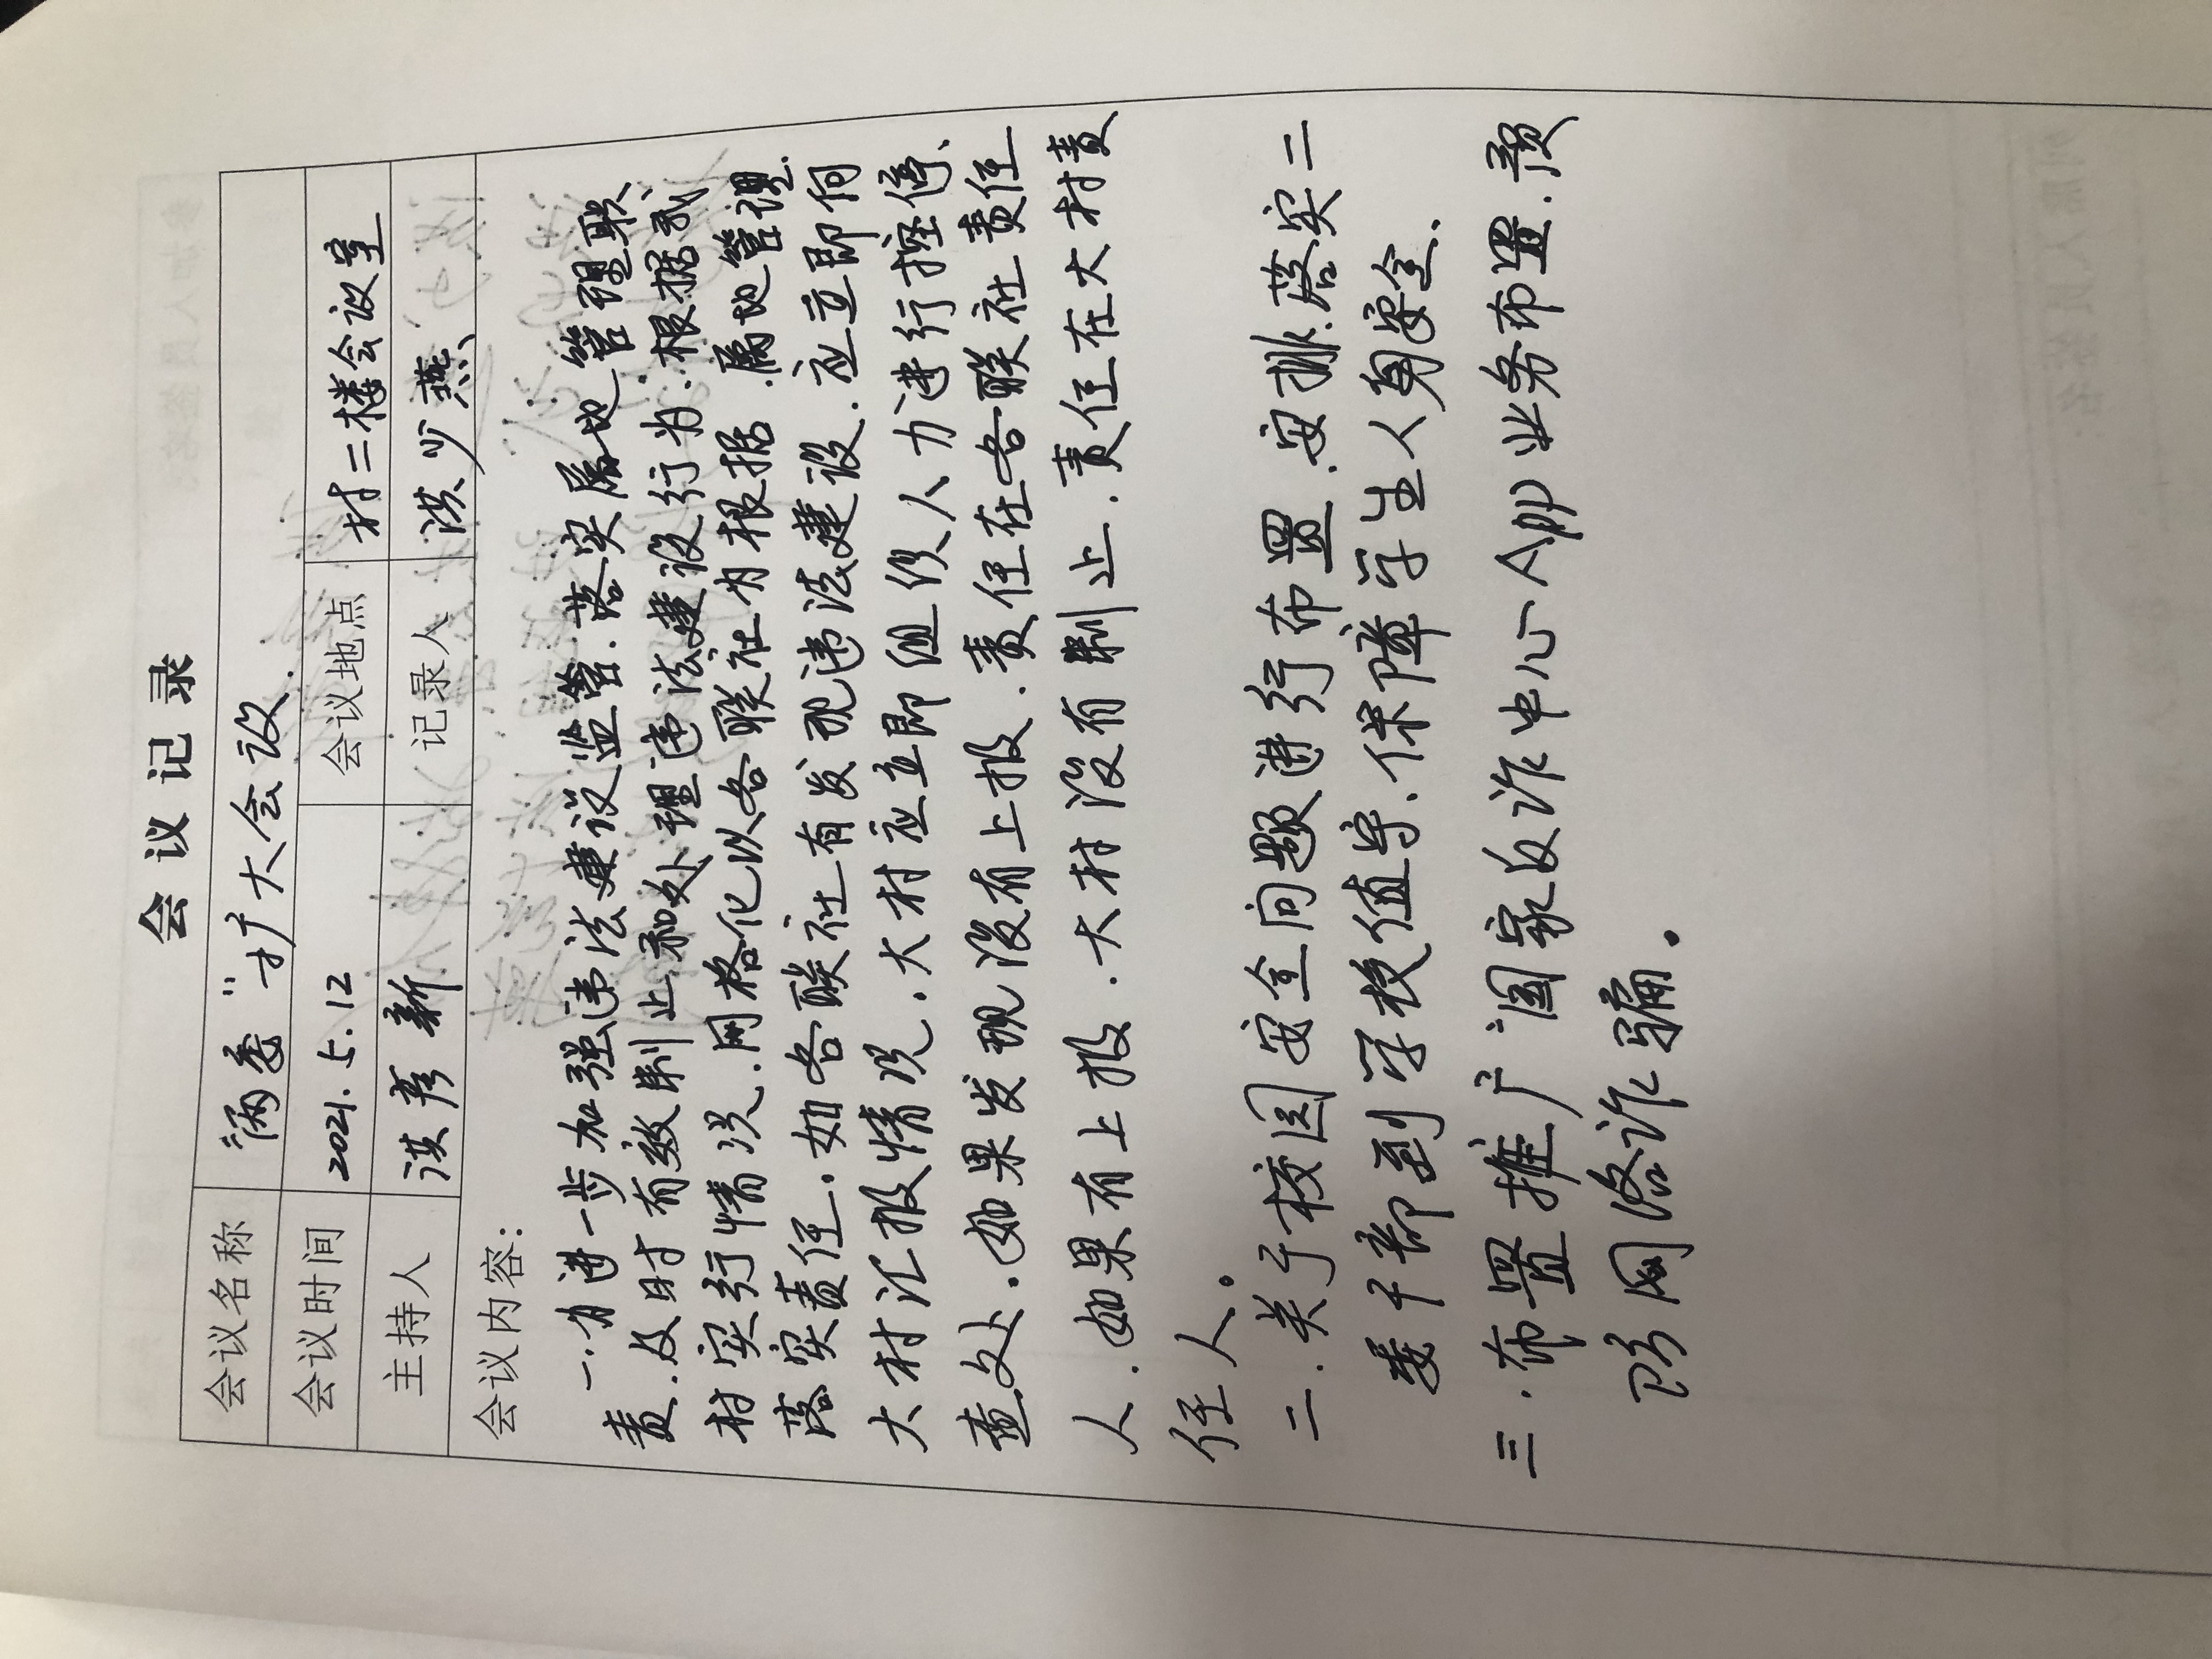 会议记录
会议名称 "两委"扩大会议.
会议时间 2021.5.12 会议地点 村二楼会议室
主持人 洪彦新 记录人 洪少燕
会议内容:
一.为进一步加强违法建设监管.落实属地管理职
责.及时有效制止和处理违法建设行为.根据我
村实行情况.网格化以各联社为根据.属地管理.
落实责任.如各联社有发现违法建设.应立即向
大村汇报情况.大村应立即组织人力进行控停、
查处.如果发现没有上报.责任在各联社责任
人.如果有上报.大村没有制止.责任在大村责
任人。
二.关于校园安全问题进行布置.安排.落实二
委干部到学校值守.保障学生人身安全.
三.布置推广国家反诈中心App业务布置.预
防网络诈骗。